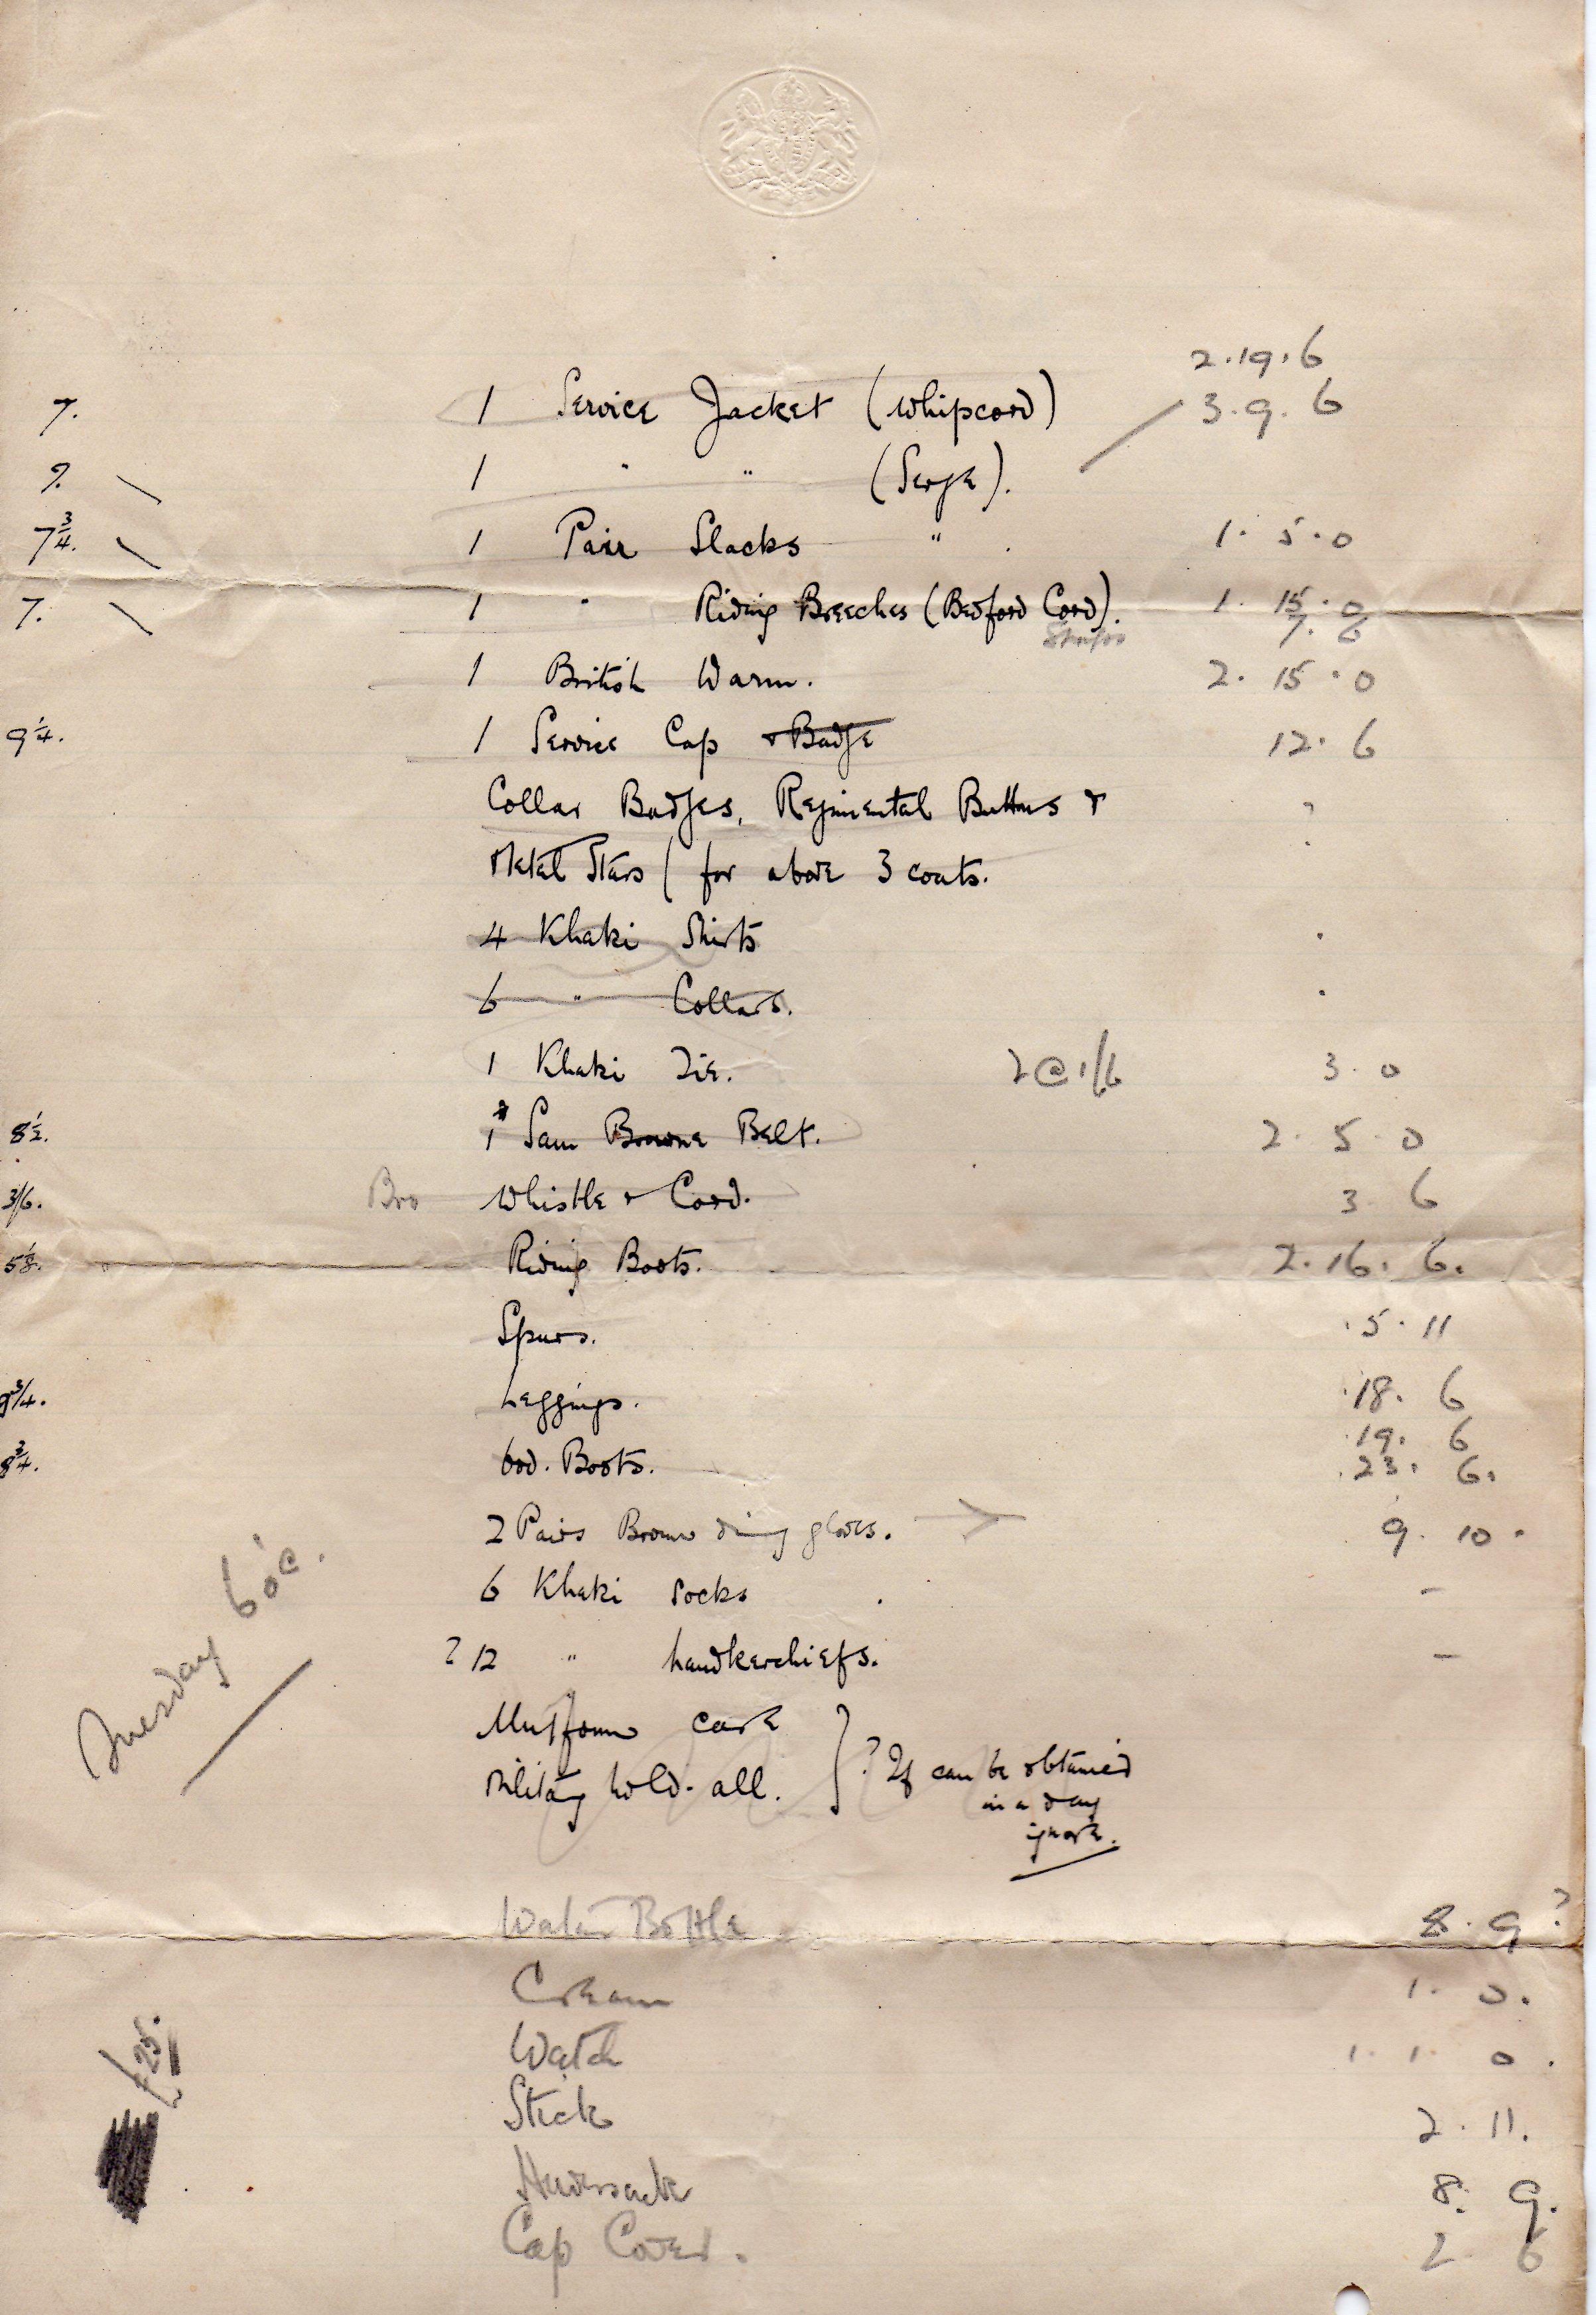 2 . 19 . 6
7. 1 Service Jacket (Whipcord) 3 . 9 . 6
9. 1 " " (Serge).
7 3/4. 1 Pair Slacks " . 1 . 5 . 0
7. 1 " Riding Breeches (Bedford Cord). 1 . 15 . 0
Straps 7 . 6
1 British Warm. 2 . 15 . 0
9 1/4. 1 Service Cap & Badge 12 . 6
Collar Badges, Regimental Buttons & ?
Metal Stars ( for above 3 coats.
4 Khaki Shirts
6 " Collars.
1 Khaki Tie. 2 @ 1/6 3 . 0
8 1/2. 1 Sam Browne Belt. 2 . 5 . 0
3/6. Bro Whistle & Cord. 3 6
5 1/8. Riding Boots. 2 . 16 . 6.
Spurs. . 5 . 11
9 3/4. Leggings. . 18 . 6
. 19 . 6
8 3/4. Boots. . 23 . 6.
2 Pairs Brown gloves. 9 . 10 .
Tuesday 6 o'c.
6 Khaki Socks . –
? 12 " handkerchiefs. –
case
Military hold-all. } ? If can be obtained
in a day
ignore.
Water Bottle 8 . 9 ?
Cream 1 . 0 .
Watch 1 . 1 . 0 .
£25.
Stick 2 . 11 .
Haversack 8 . 9 .
Cap Cover. 2 6